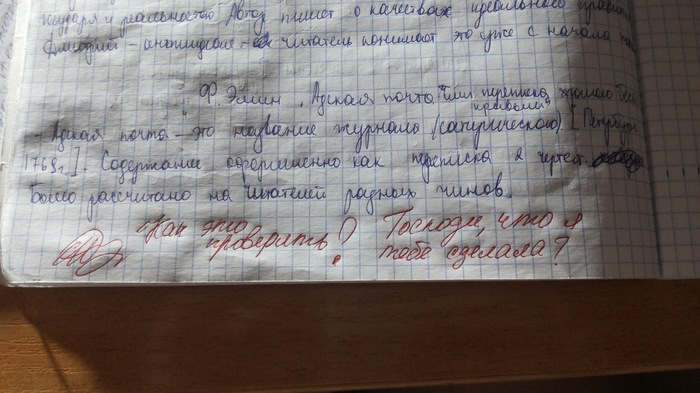 и реальностью. Автор пишет о качествах идеального
Дмитрий - антиидеал - читатель понимает это уже с начала
Ф. Эмин. "Адская почта или переписка хромого беса с
кривым"
- Адская почта - это название журнала (сатирического) [Петербург
1769г.]. Содержание оформленно как переписка 2 чертей.
Было рассчитано на читателей разных чинов.
Как это Господи, что я
проверить? тебе сделала?